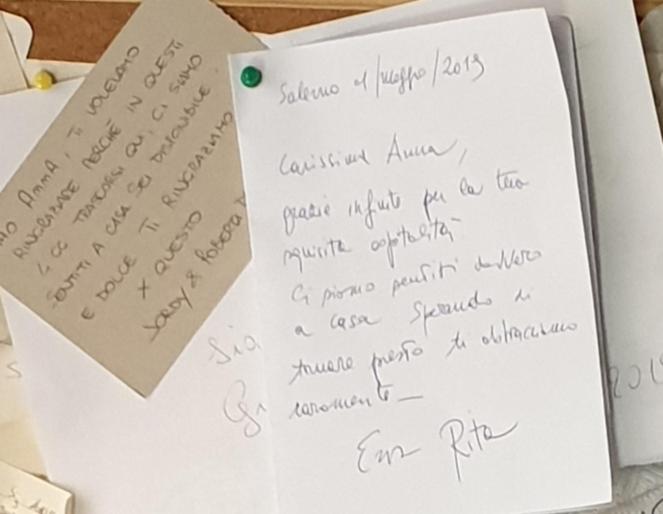 ANNA, TI VOLEVAMO
RINGRAZIARE PERCHÈ IN QUESTI
4 GG TRASCORSI QUI, CI SIAMO
SENTITI A CASA SEI DISPONIBILE
E DOLCE TI RINGRAZIAMO
X QUESTO
JORDY & ROBERTA
Salerno 1/Maggio/2019
Carissima Anna,
grazie infinite per la tua
squisita ospitalità
Ci siamo sentiti davvero
a casa sperando di
tornare presto ti abbracciamo
caramente_
Rita
Sia
Gr
201